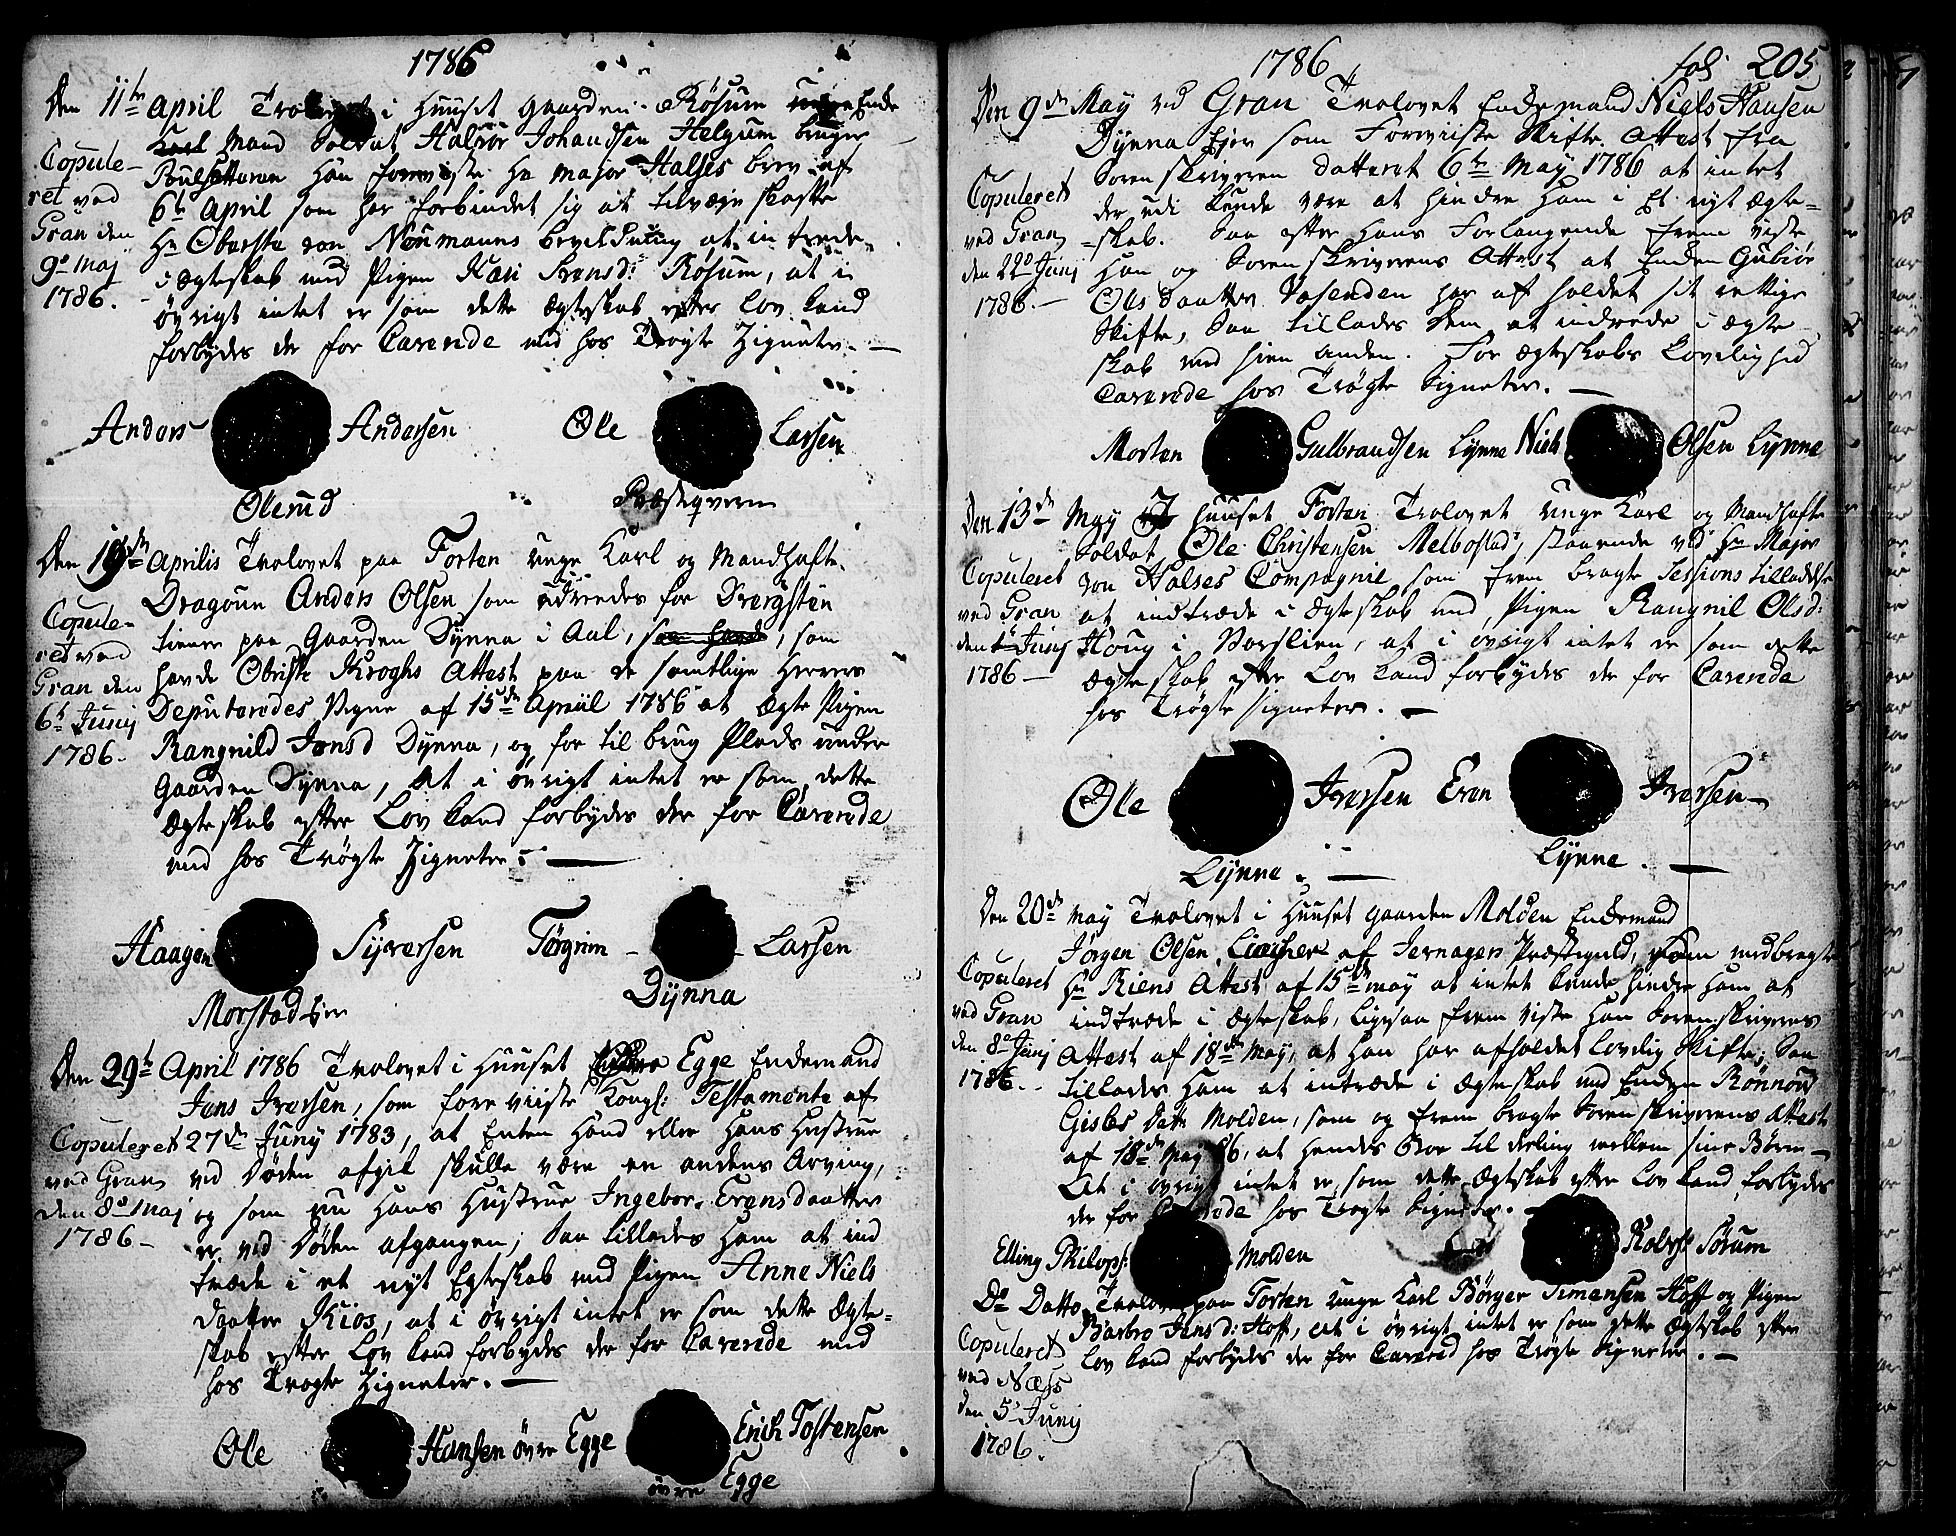 1786
Den 11te April Trolovet i Huuset gaarden Røsum Ende
Mand Soldat Halvor Johandsen Helgum bruger
Poulsætteren Han foreviste Hr Major Halses brev af
6te April som har forbindet sig at tilveje skaffe
Hr Obersta von Neumanns at intrede
i Ægteskab med Pigen Kari Svensd: Røsum, at i
øvrigt intet er som dette Ægteskab efter Lov kand
forbydes der for Caverede med hos Trøgte Zigneter. —
Copule-
ret ved
Gran den
9de Maj
1786.
Anders Andersen Ole Larsen
Olerud Præsteqvern
Den 19de Aprilis Trolovet paa Forten unge Karl og Mandhafte
Dragoun Anders Olsen som udreedes for Bergsten
tiener paa Gaarden Dynna i Aal, som
havde Obriste Kroghs Attest paa de samtlige Herrers
Deputeredes Vegne af 15de Apriil 1786 at Ægte Pigen
Rangnild Jonsd Dynna, og for til brug Plads under
Gaarden Dynna, At i øvrigt intet er som dette
Ægteskab efter Lov kand forbydes der for Caverede
med hos Trøgte Zigneter: —
Copule-
ret ved
Gran den
6te Junij
1786.
Haagen Syversen Torgrim Larsen
Morstad Eier Dynna
Den 29te April 1786 Trolovet i Huuset Egge Endemand
Jens Iversen, som foreviiste Kongl: Testamente af
27de Juny 1783, at Enten Hand eller Hans Hustrue
ved Døden afgik skulle være en andens Arving,
og som nu Hans Hustrue Ingebor Evensdaatter
er ved Døden afgangen; Saa tillades Ham at ind
træde i et nyt Egteskab med Pigen Anne Niels
daatter Kios, at i øvrigt intet er som dette Ægte-
skab efter Lov kand forbydes der for Caverede med
hos Trøgte Zigneter. —
Copuleret
ved Gran
den 8de Maj
1786 —
Ole Hansen øvre Egge Erich Tostensen
øvre Egge
1786 fol: 205
Den 9de May ved Gran Trolovet Endemand Niels Hansen
Dynna Ejer som Forviiste Skifte Attest fra
Sorenskriveren datteret 6te May 1786 at intet
der udi kunde være at hindre Ham i Et nyt Ægte-
skab. Saa efter Hans Forlangende frem viste
Han og Sorenskriverens Attest at Enken Gubiør
Ols Daatter Vasenden har af holdet sit rettige
Skifte, Saa tillades dem at indrede i Ægte
skab med hin anden. For Ægteskabs Lovlighed
Caverede hos Trøgte Signeter. —
Copuleret
ved Gran
den 22de Junij
1786. —
Morten Gulbrandsen Lynne Niels Olsen Lynne
Den 13de May I Huuset Forten Trolovet unge Karl og Mandhafte
Soldat Ole Christensen Melbostad, staaende ved Hr Major
von Halses Compagnie som frem bragte Sessions tilladelse
at indtræde i Ægteskab med Pigen Rangnil Olsd:
Houg i Vorslien, at i øvrigt intet er som dette
Ægteskab efter Lov kand forbydes der for Caverede
hos Trøgte Signeter. —
Copuleret
ved Gran
den Junij
1786 —
Ole Iversen Even Iversen
Lynne. — Lynne. —
Den 20de May Trolovet i Huuset gaarden Molden Endemand
Jørgen Olsen af Jernagers Præstegield, som medbragte
Hr Riens Attest af 15de May at intet kunde hindre Ham at
indtræde i Ægteskab, Ligesaa frem viste Han Sorenskriverens
Attest af 18de May, at Han har afholdet lovlig Skifte; Saa
tillades Ham at intræde i Ægteskab med Enken Rønnou
Gisles Datt: Molden, som og frem bragte Sorenskriverens Attest
af 18de May 86, at Hendes Boe til deeling mellem sine Børn —
At i øvrigt intet er som dette Ægteskab efter Lov kand forbydes
der for Caverede hos Trøgte Signeter. —
Copuleret
ved Gran
den 8de Junij
1786. —
Elling Philops: Molden Robert Sørum
Do Datto Trolovet paa Forten unge Karl Børger Simensen Hoff og Pigen
Barbro Jensd: Hoff, at i øvrigt intet er som dette Ægteskab efter
Lov kand forbydes der for Cavered hos Trøgte Signeter. —
Copuleret
ved Næss
den 5te Junij
1786.